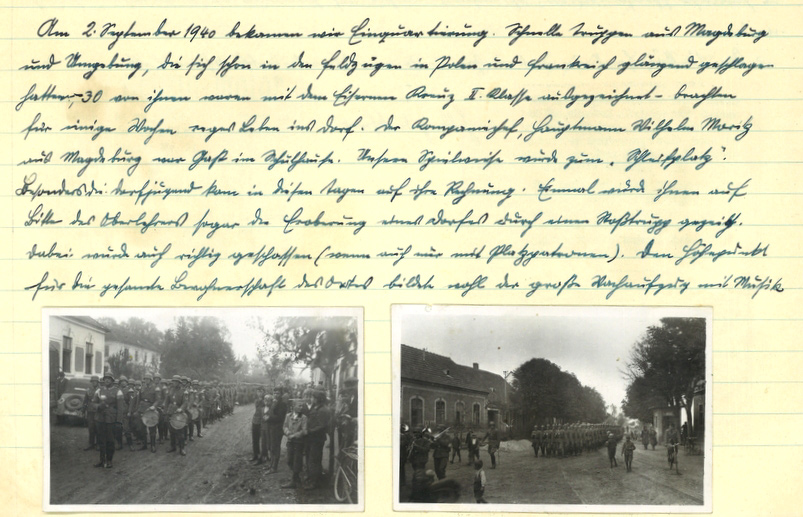 Am 2. September 1940 bekamen wir Einquartierung. Schnelle Truppen aus Magdeburg
und Umgebung, die sich schon in den Feldzügen in Polen und Frankreich glänzend geschlagen
hatten, -30 von ihnen waren mit dem Eisernen Kreuz II. Klasse ausgezeichnet - brachten
für einige Wochen reges Leben ins Dorf. Der Kompaniechef, Hauptmann Wilhelm Moritz
aus Magdeburg war Gast im Schulhause. Unsere Spielwiese wurde zum „Schleifplatz".
Besonders die Dorfjugend kam in diesen Tagen auf ihre Rechnung. Einmal wurde ihnen auf
Bitte des Oberlehrers sogar die Eroberung eines Dorfes durch einen Stoßtrupp gezeigt.
Dabei wurde auch richtig geschossen (wenn auch nur mit Platzpatronen). Den Höhepunkt
für die gesamte Bewohnerschaft des Ortes bildete wohl der große Wachaufzug mit Musik